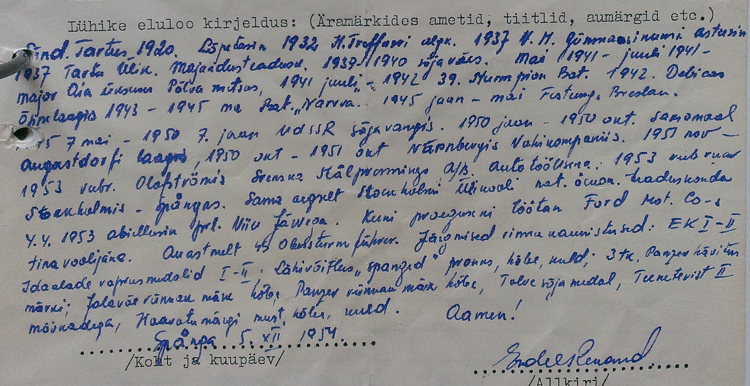 Lühike eluloo kirjeldus: (Äramärkides ametid, tiitlid, aumärgid etc.)
Sünd. Tartus 1920. Lõpetasin 1932 H. Treffneri algk. 1937 gümnaasiumi astusin
1937 Tartu Ülik. Majandusteadusk. 1939-1940 sõjaväes. Mai 1941 - juuli 1941 -
major üksuses Põlva metsas, 1941 juuli - 1942 39. Bat. 1942. Debicas
1943 - 1945 ma Bat. „Narva. 1945 jaan - mai Festung Breslau.
7 mai - 1950 7. jaan UdSSR sõjavangis. 1950 jaan - 1950 okt. samomaal
Augustdorfi laagris, 1950 okt - 1951 okt Nürnbergis Vahikompaniis. 1951 nov -
1953 vebr. Olofströmis Svenska Stålpressnings A/B. Autotööline. 1953 vebruar
Stockholmis - Spångas. Sama aegselt Stockholmi Ülikooli nat. ökon. teaduskonda
4.4. 1953 abiellusin prl. Niiu Kuni praegusini töötan Ford Mot. Co-s
Auastmelt Järgmised rinnanaunistused: EK I-II
Idaalade vaprusmedalid I-II. Lähivõitlus „spanged" pronks, hõbe, kuld; 3 tk. Panzer hävitus
märki; Jalaväe rünnak märk hõbe, Panzer rünnak märk hõbe, Talve sõja medal, Teeneterist II
mõõkadega, Haavatu märgi must, hõbe, kuld. Aamen!
Spånga 5. XII. 1954.
/Koht ja kuupäev/
/Allkiri/